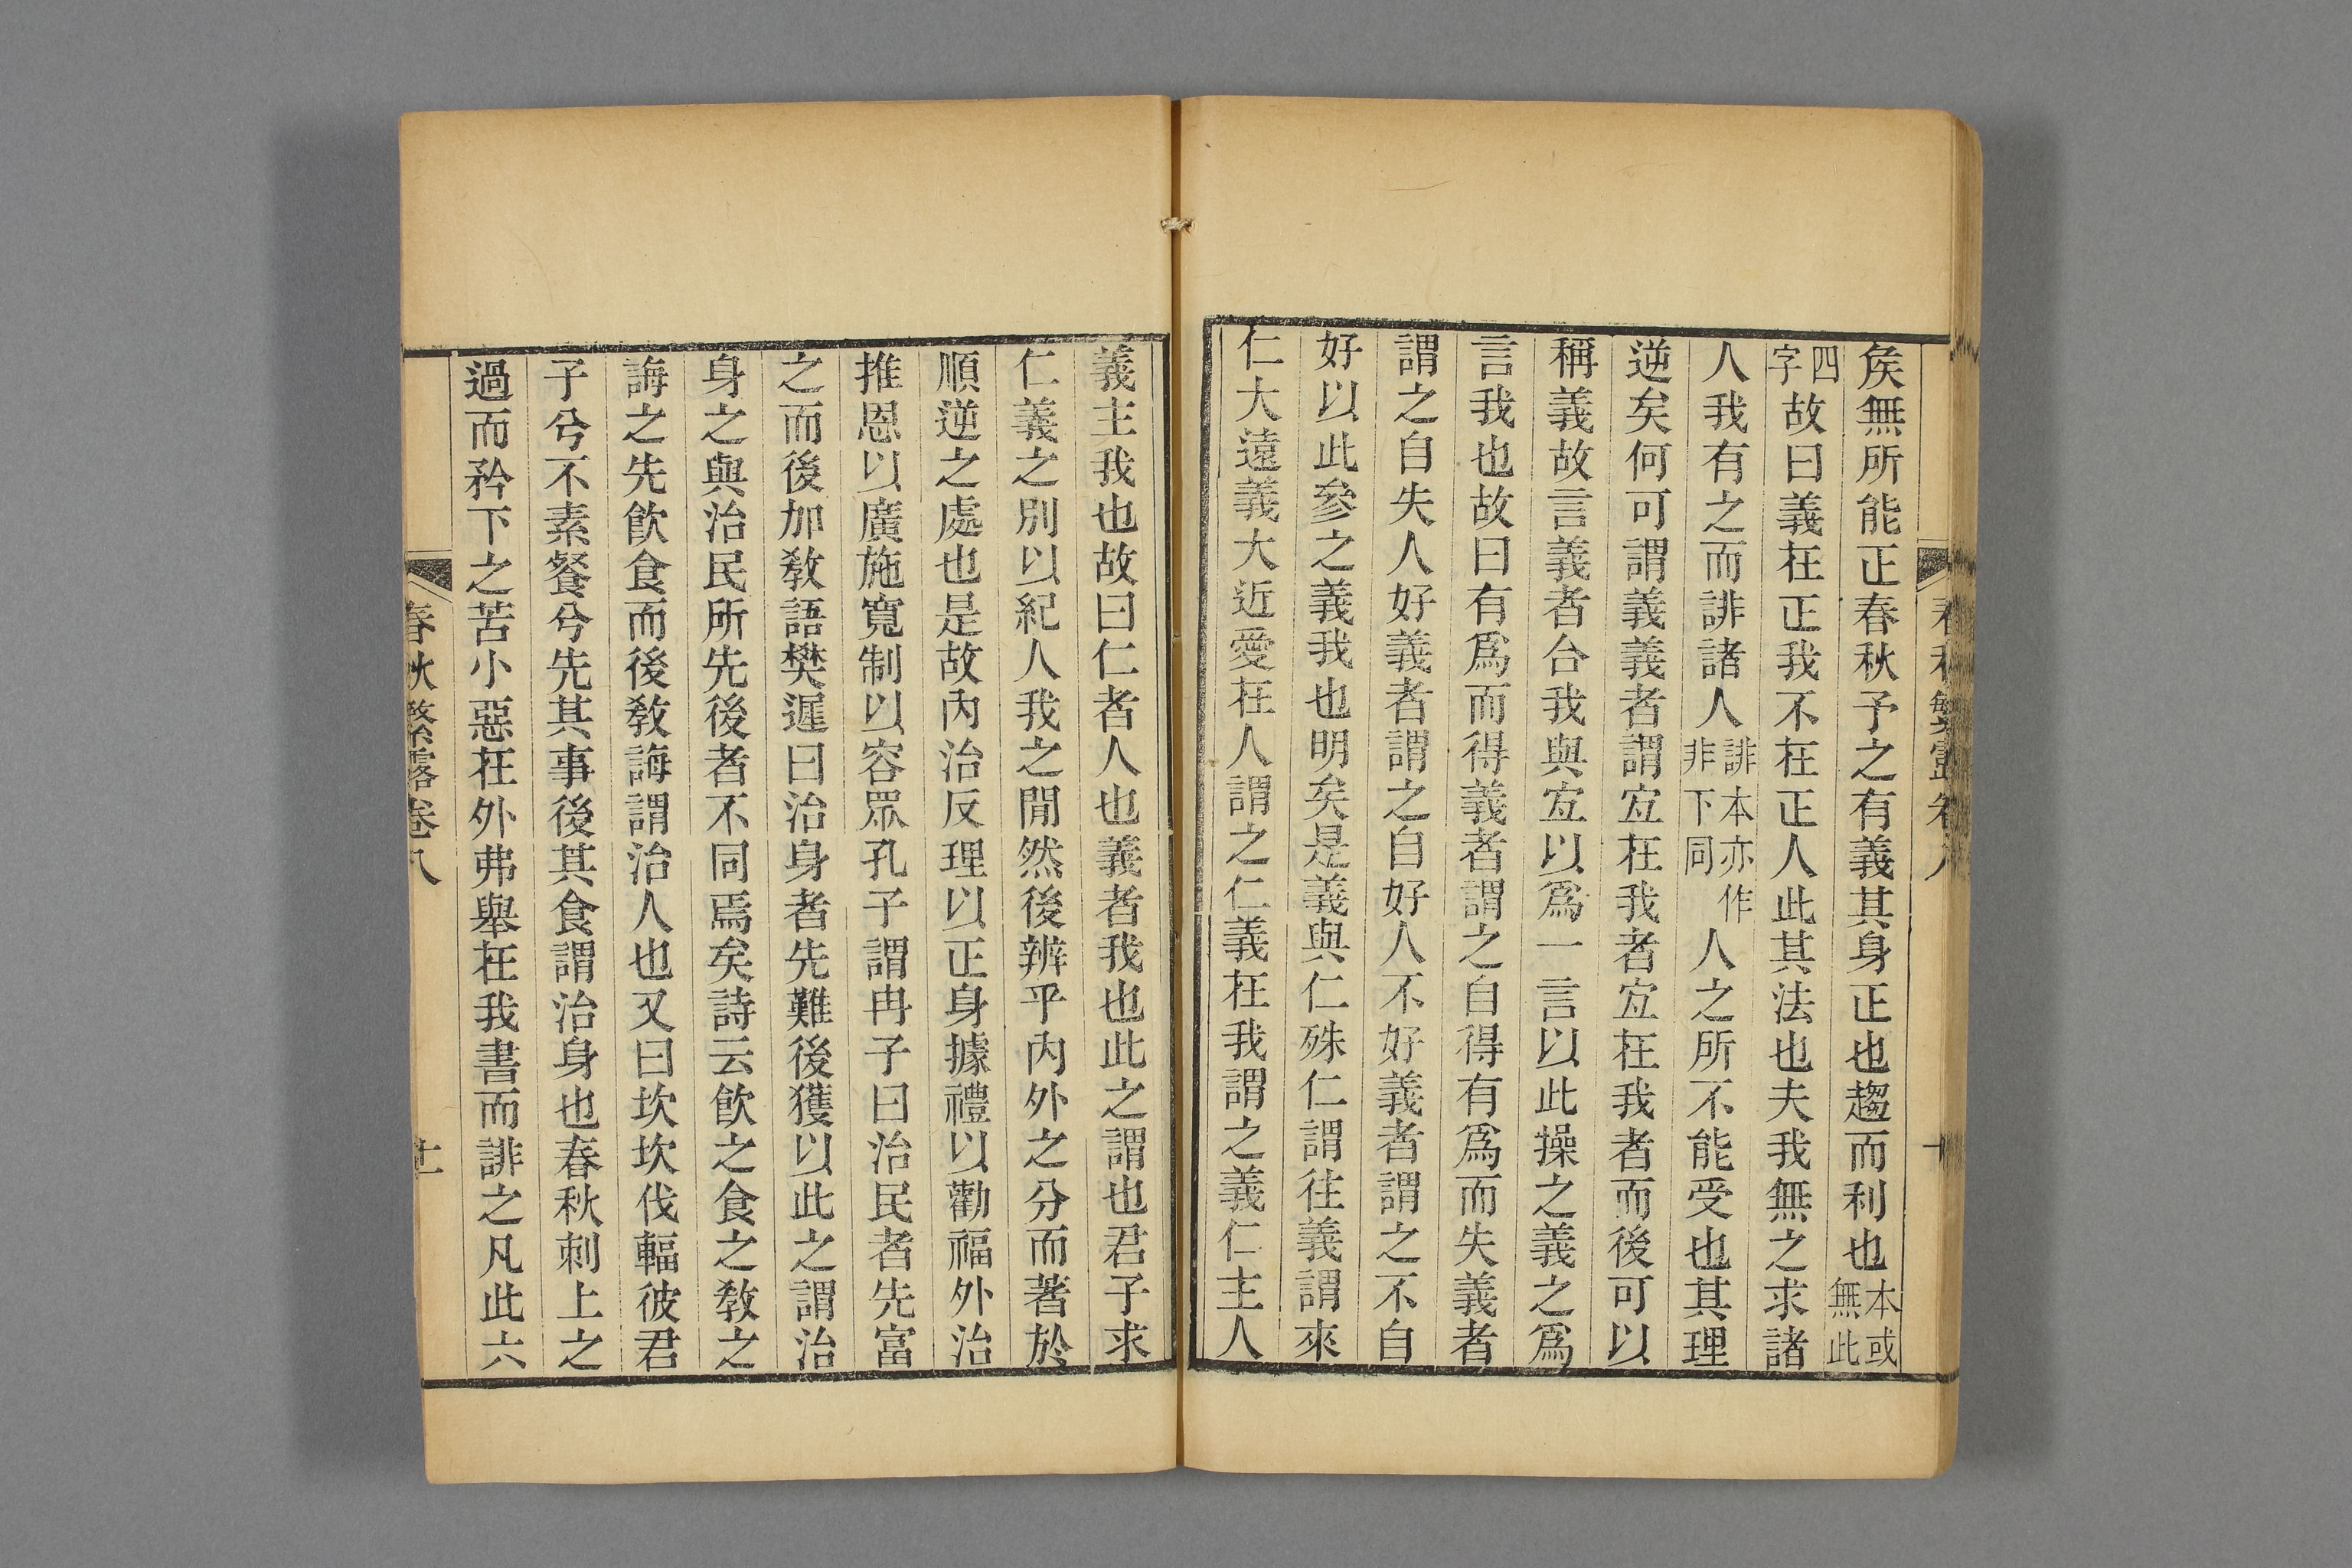 矦無所能正春秋予之有義其身正也趨而利也本或無此
四字故曰義在正我不在正人此其法也夫我無之求諸
人我有之而誹諸人誹本亦作非下同人之所不能受也其理
逆矣何可謂義義者謂宜在我者宜在我者而後可以
稱義故言義者合我與宜以爲一言以此操之義之爲
言我也故曰有爲而得義者謂之自得有爲而失義者
謂之自失人好義者謂之自好人不好義者謂之不自
好以此參之義我也明矣是義與仁殊仁謂往義謂來
仁大遠義大近愛在人謂之仁義在我謂之義仁主人
義主我也故曰仁者人也義者我也此之謂也君子求
仁義之別以紀人我之閒然後辨乎內外之分而著於
順逆之處也是故內治反理以正身據禮以勸福外治
推恩以廣施寬制以容眾孔子謂冉子曰治民者先富
之而後加敎語樊遲曰治身者先難後獲以此之謂治
身之與治民所先後者不同焉矣詩云飮之食之敎之
誨之先飮食而後敎誨謂治人也又曰坎坎伐輻彼君
子兮不素餐兮先其事後其食謂治身也春秋刺上之
過而矜下之苦小惡在外弗舉在我書而誹之凡此六
春秋繁露卷八